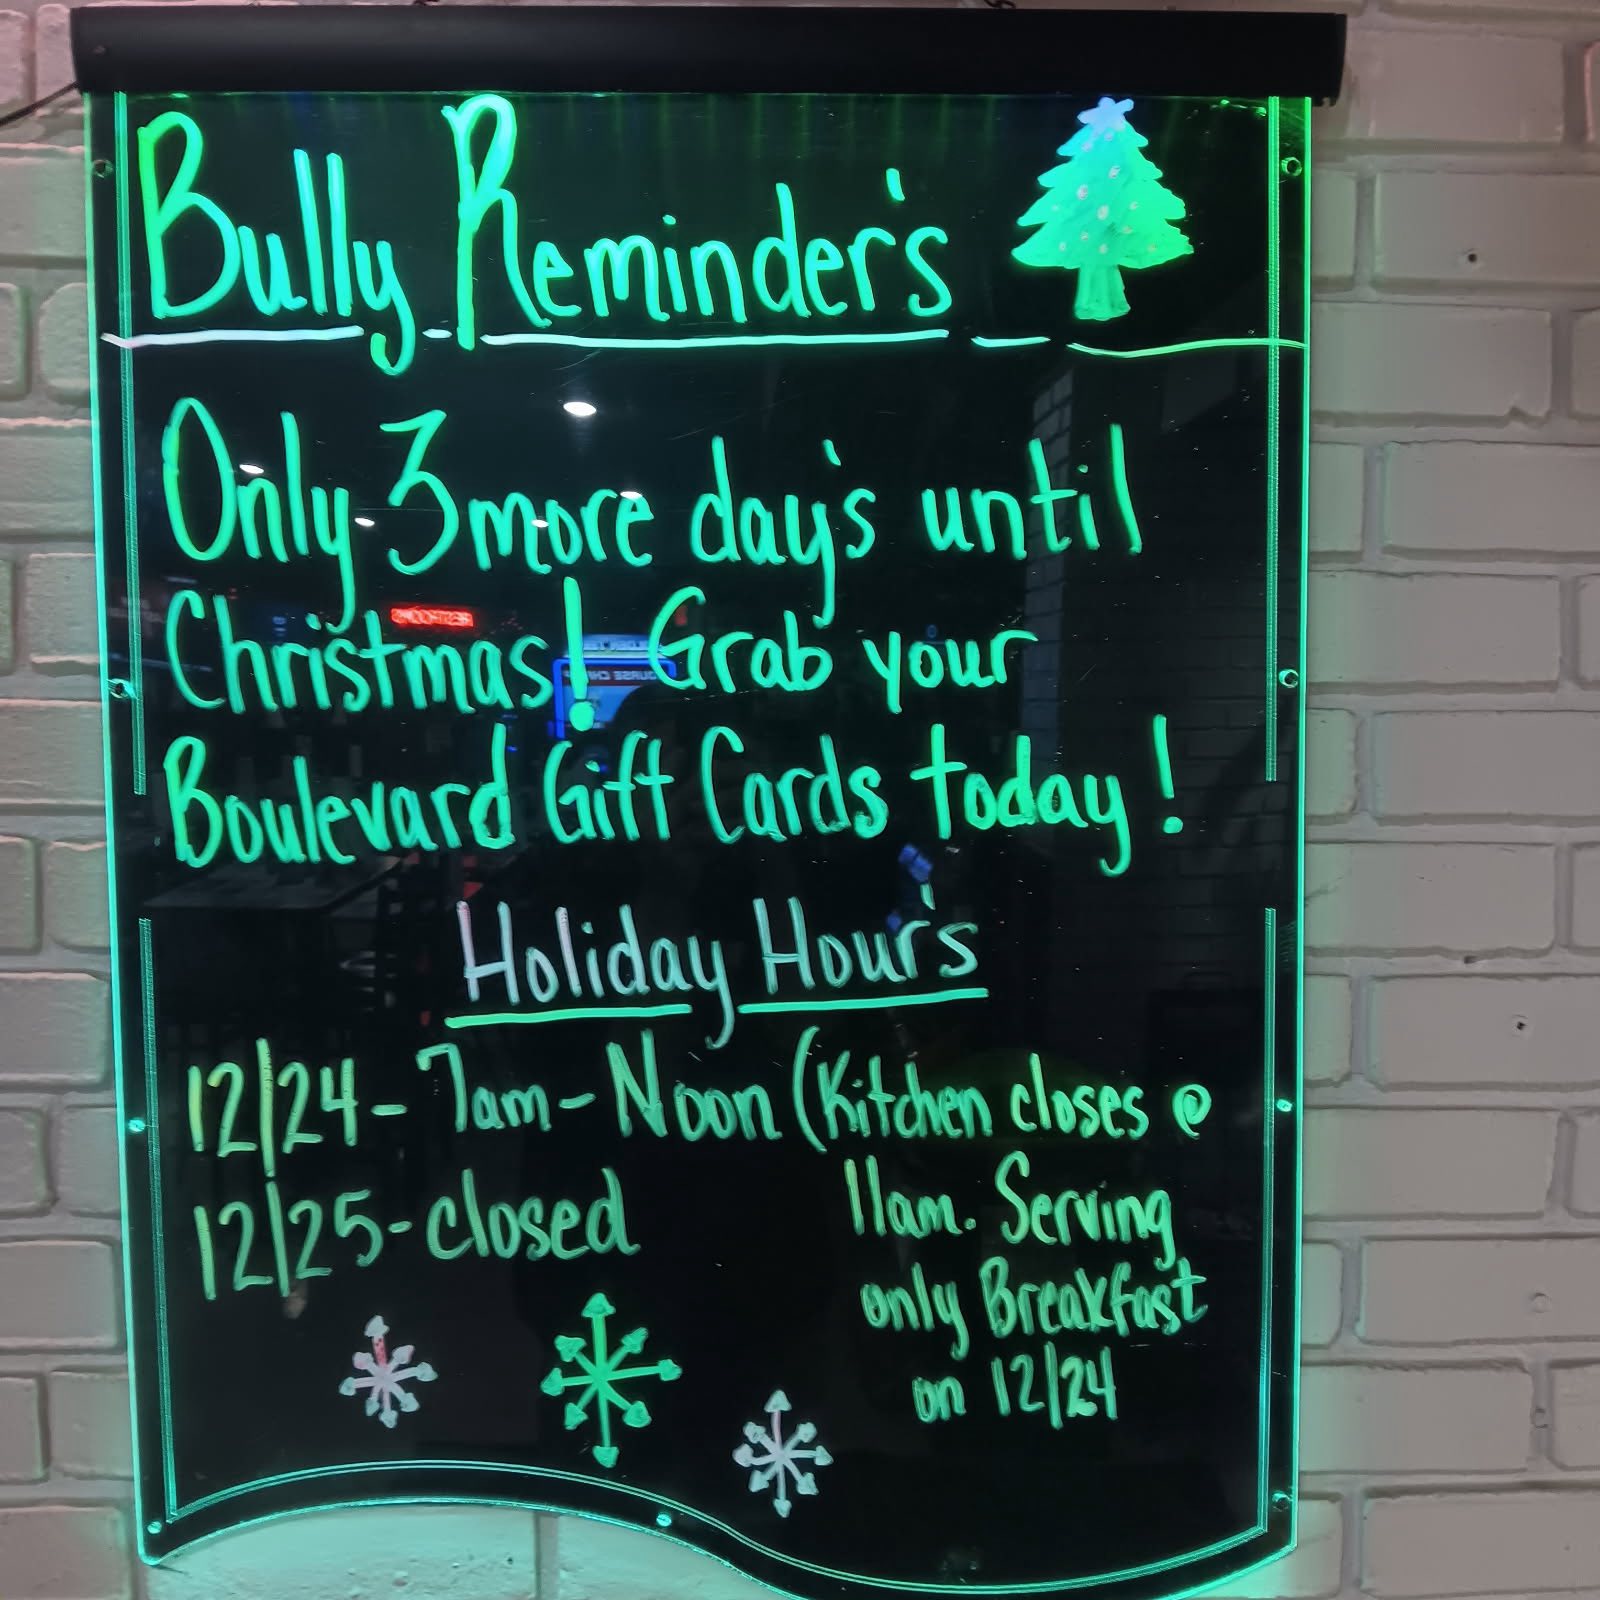 Bully Reminder's
Only 3 more day's until
Christmas! Grab your
Boulevard Gift Cards today!
Holiday Hour's
12/24 - 7am - Noon (Kitchen closes @
11am. Serving
only Breakfast
on 12/24
12/25 - closed
RESTROOMS